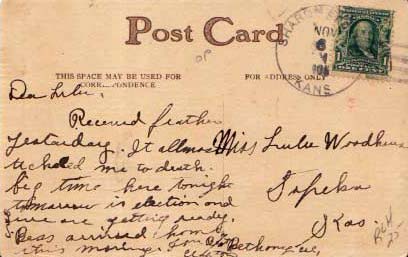 Post Card
THIS SPACE MAY BE USED FOR
CORRESPONDENCE
FOR ADDRESS ONLY
SHARON
NOV
KANS
Dear Lulu,
Received feather
yesterday. It allmost
me to death.
big time here tonight
tomorrow is election and
are getting ready.
Bess arrived home
this morning.
Miss Lulu
Topeka
Kas.